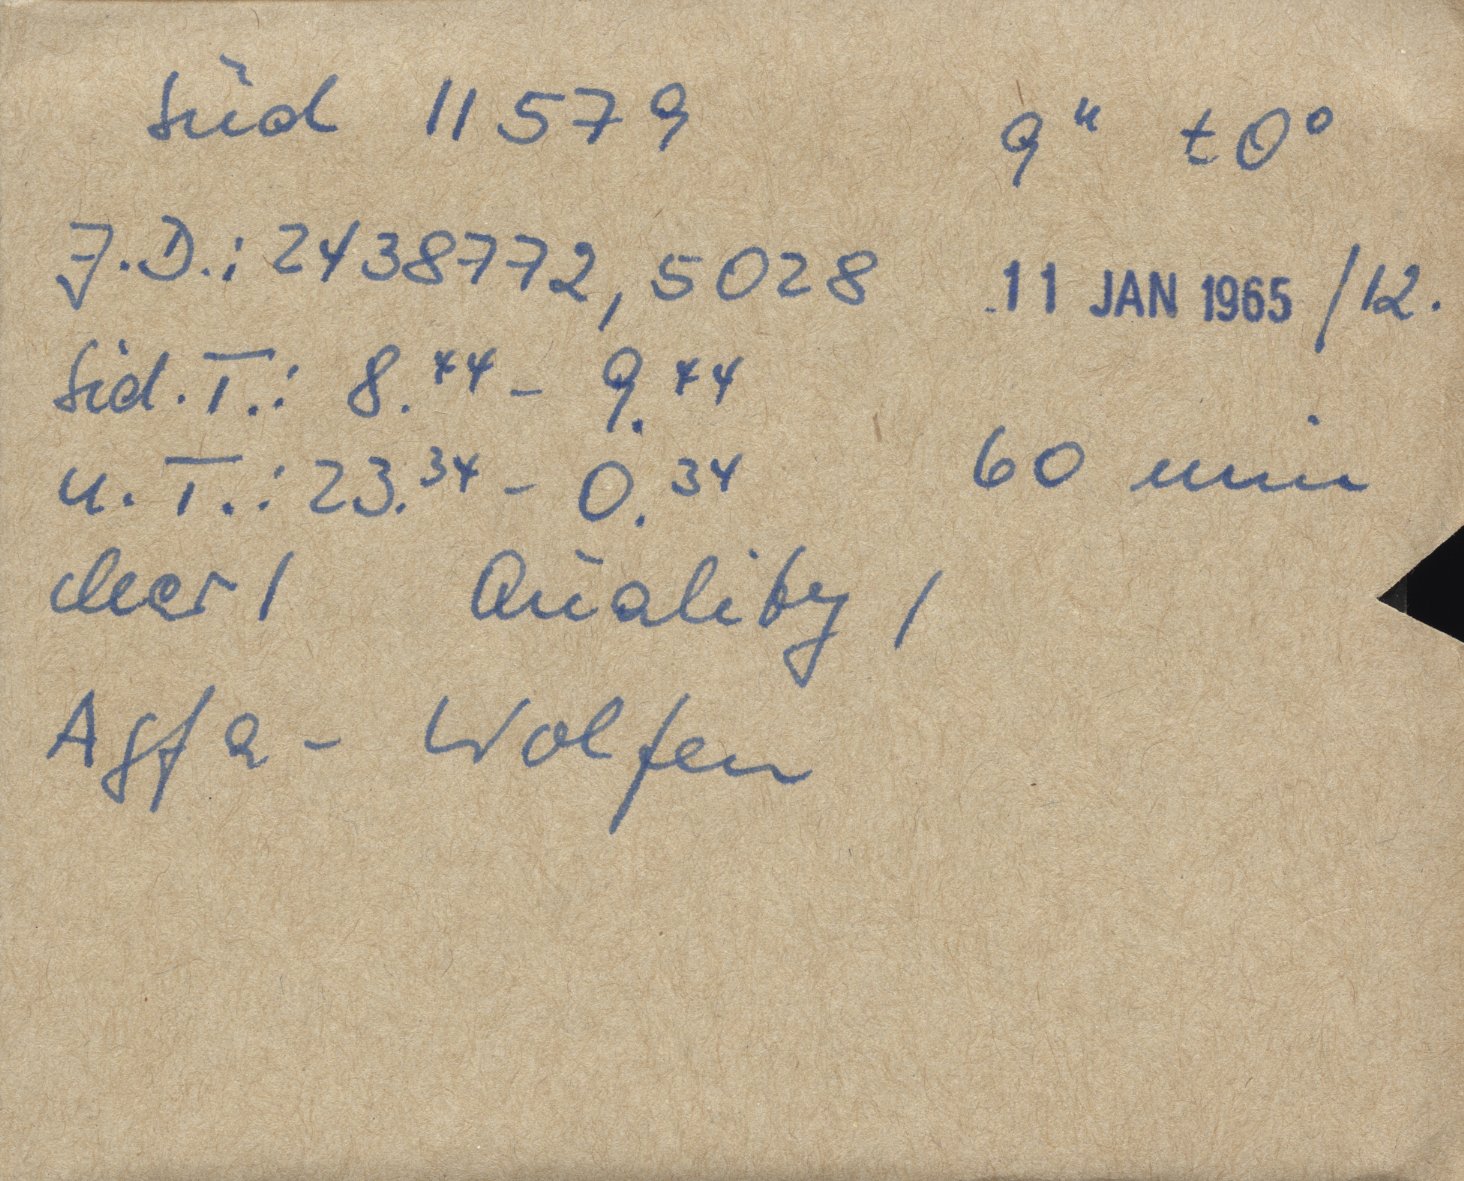 Süd 11579 9ʰ ±0°
J.D.: 2438772,5028 11 JAN 1965 /12.
Sid. T.: 8.⁴⁴ - 9.⁴⁴
U. T.: 23.³⁴ - 0.³⁴ 60 min
clear 1 Quality 1
Agfa - Wolfen